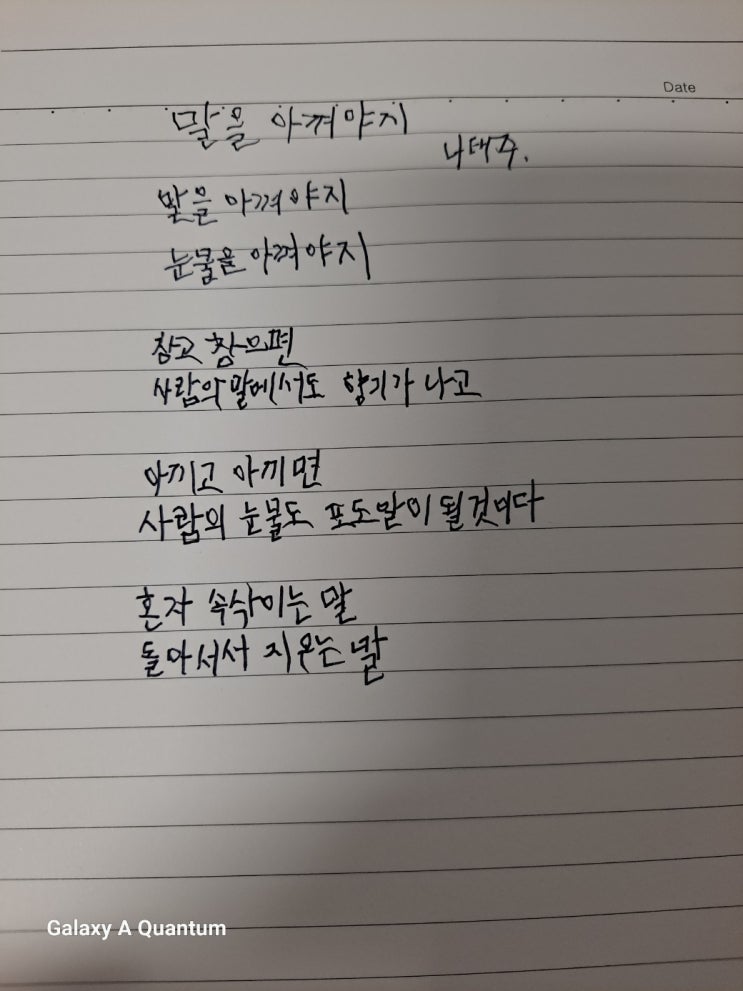 Date
말을 아껴야지
나태주.
말을 아껴야지
눈물을 아껴야지
참고 참으면
사람의 말에서도 향기가 나고
아끼고 아끼면
사람의 눈물도 포도알이 될것이다
혼자 속삭이는 말
돌아서서 지우는 말
Galaxy A Quantum